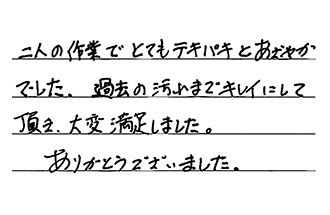 二人の作業でとてもテキパキとあざやか
でした。過去の汚れまでキレイにして
頂き、大変満足しました。
ありがとうございました。